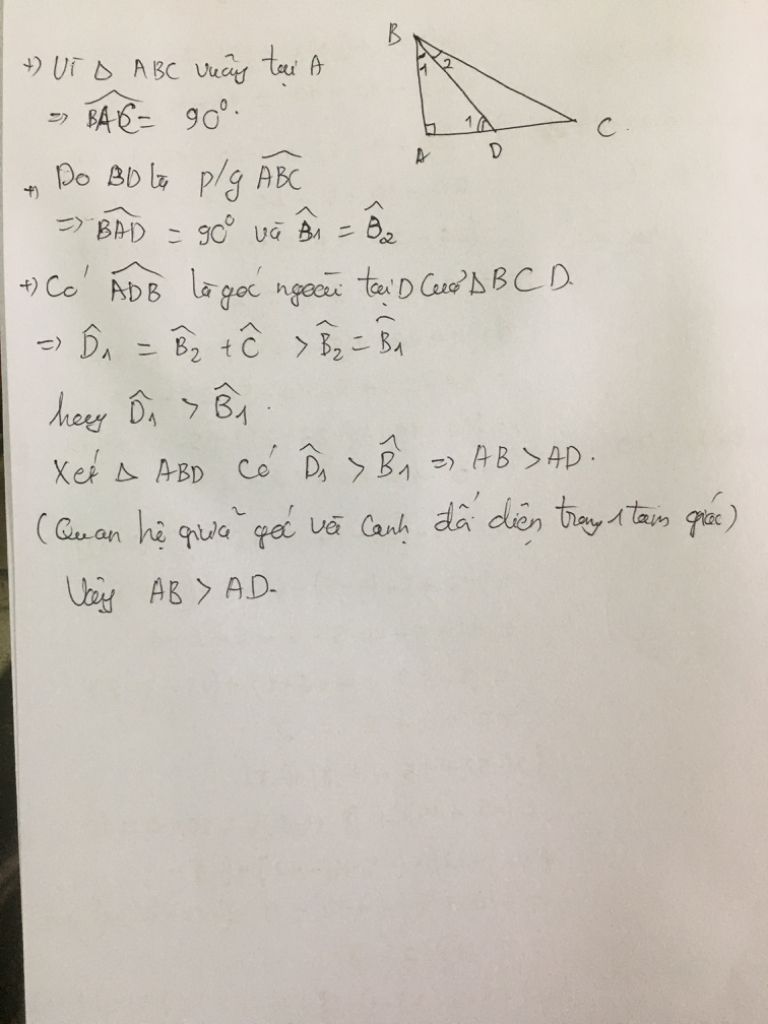 +) Vì Δ ABC vuông tại A
=> \widehat{BAC} = 90°.
+) Do BD là p/g \widehat{ABC}
=> \widehat{BAD} = 90° và \hat{B}1 = \hat{B}2
+) Có \widehat{ADB} là góc ngoài tại D của Δ BCD.
=> \hat{D}1 = \hat{B}2 + \hat{C} > \hat{B}2 = \hat{B}1
hay \hat{D}1 > \hat{B}1.
Xét Δ ABD có \hat{D}1 > \hat{B}1 => AB > AD.
(Quan hệ giữa góc và cạnh đối diện trong 1 tam giác)
Vậy AB > AD.
B
1 2
1
A D C